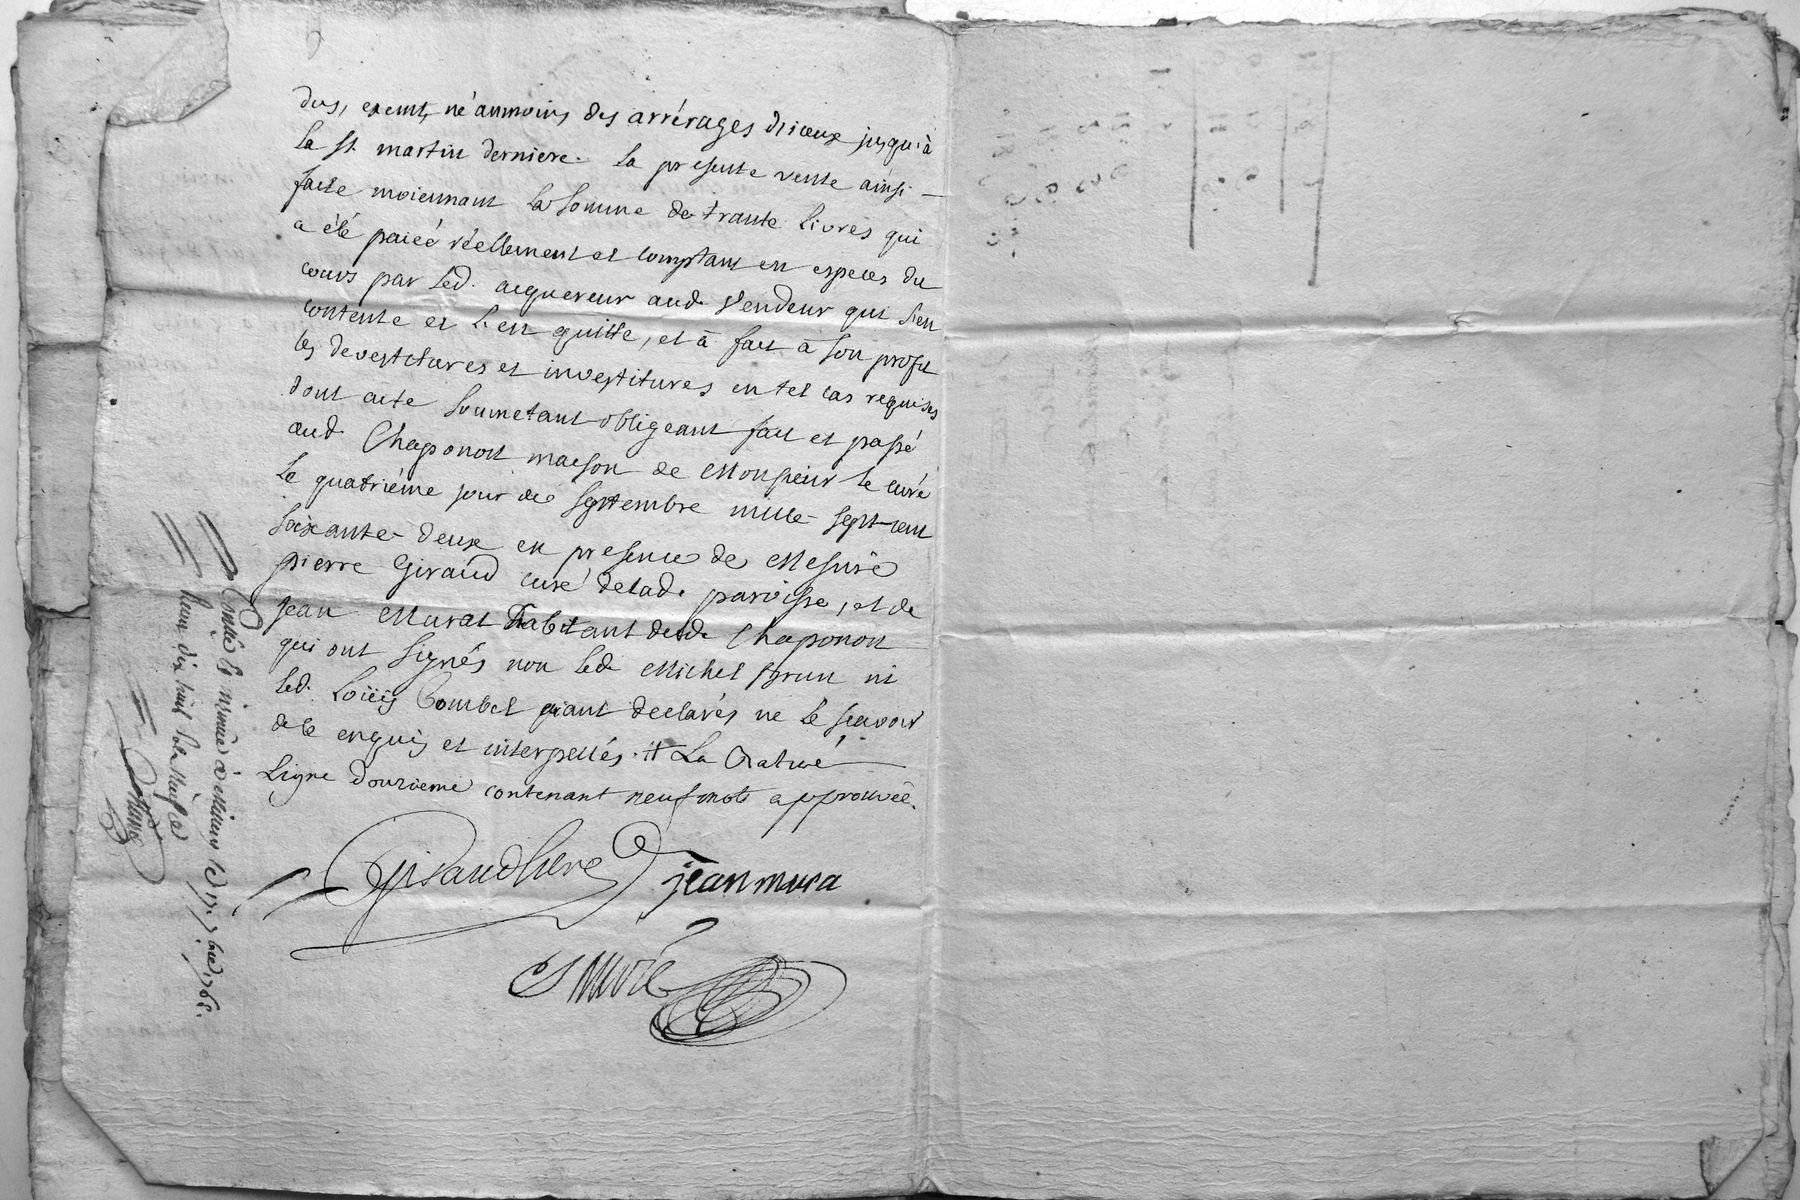 dus, exemt, néanmoins des arrérages d'iceux jusqu'à
la St. martin derniere. la presente vente ainsi
faite moiennant la somme de trante livres qui
a été paieé réellement et comptant en especes du
cours par led. acquereur aud. vendeur qui s'en
contente et l'en quitte, et à fait à son profit
les devestitures et investitures en tel cas requises
dont acte soumetant obligeant fait et passé
aud. Chaponost maison de Monsieur le curé
le quatriéme jour de septembre mille sept-cent
soixante-deux en presence de Messire
pierre Giraud curé delad. paroisse, et de
Jean Murat habitant dud. Chaponost
qui ont signés non led. Michel brun ni
led. Loüis Combet aiant declarés ne le scavoir
de ce enquis et interpellés. # La Raturé
Ligne douzieme contenant neuf mots approuvée.
Giraud Curé
jean mura
Controlé la minute à